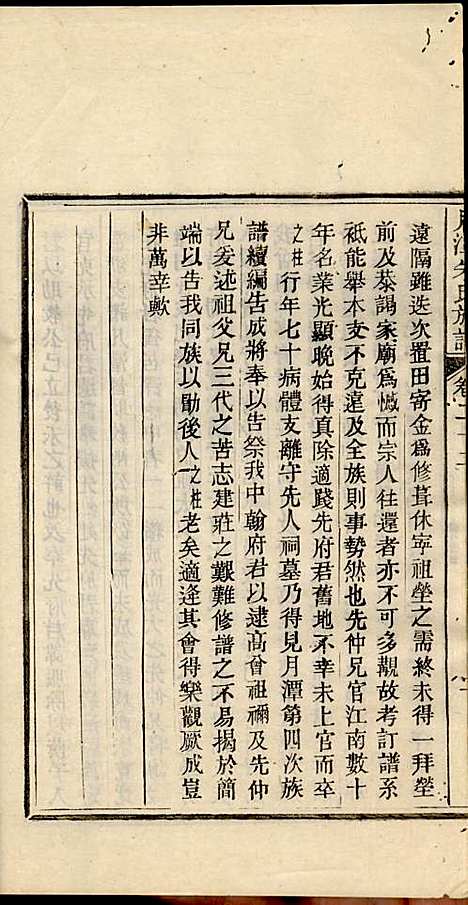 月潭朱氏族譜
卷二十三
遠隔雖迭次置田寄金爲修葺休寧祖塋之需終未得一拜塋
前及恭謁家廟爲慽而宗人往還者亦不可多覯故考訂譜系
祇能舉本支不克遠及全族則事勢然也先仲兄官江南數十
年名業光顯晚始得真除適踐先府君舊地不幸未上官而卒
之桂行年七十病體支離守先人祠墓乃得見月潭第四次族
譜續編告成將奉以告祭我中翰府君以逮高曾祖禰及先仲
兄爰述祖父兄三代之苦志建莊之艱難修譜之不易揭於簡
端以告我同族以勖後人之桂老矣適逢其會得樂觀厥成豈
非萬幸歟